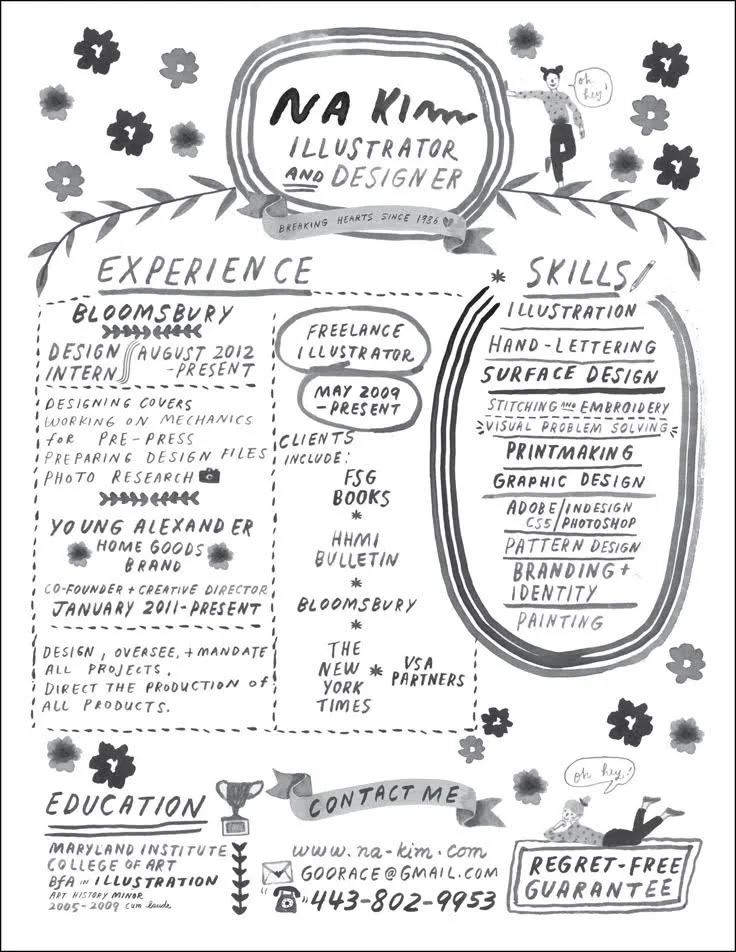 NA KIM
ILLUSTRATOR
AND DESIGNER
BREAKING HEARTS SINCE 1986
oh hey!
EXPERIENCE
BLOOMSBURY
DESIGN INTERN
AUGUST 2012 -PRESENT
DESIGNING COVERS
WORKING ON MECHANICS
for PRE-PRESS
PREPARING DESIGN FILES
PHOTO RESEARCH
YOUNG ALEXANDER
HOME GOODS
BRAND
CO-FOUNDER + CREATIVE DIRECTOR
JANUARY 2011-PRESENT
DESIGN, OVERSEE, + MANDATE
ALL PROJECTS.
DIRECT THE PRODUCTION of
ALL PRODUCTS.
FREELANCE
ILLUSTRATOR
MAY 2009
-PRESENT
CLIENTS
INCLUDE:
FSG
BOOKS
HHMI
BULLETIN
BLOOMSBURY
THE
NEW
YORK
TIMES
VSA
PARTNERS
SKILLS
ILLUSTRATION
HAND-LETTERING
SURFACE DESIGN
STITCHING AND EMBROIDERY
VISUAL PROBLEM SOLVING
PRINTMAKING
GRAPHIC DESIGN
ADOBE CS5/INDESIGN PHOTOSHOP
PATTERN DESIGN
BRANDING +
IDENTITY
PAINTING
EDUCATION
MARYLAND INSTITUTE
COLLEGE OF ART
BfA IN ILLUSTRATION
ART HISTORY MINOR
2005-2009 cum laude
CONTACT ME
www.na-kim.com
GOORACE@GMAIL.COM
443-802-9953
oh hey!
REGRET-FREE
GUARANTEE